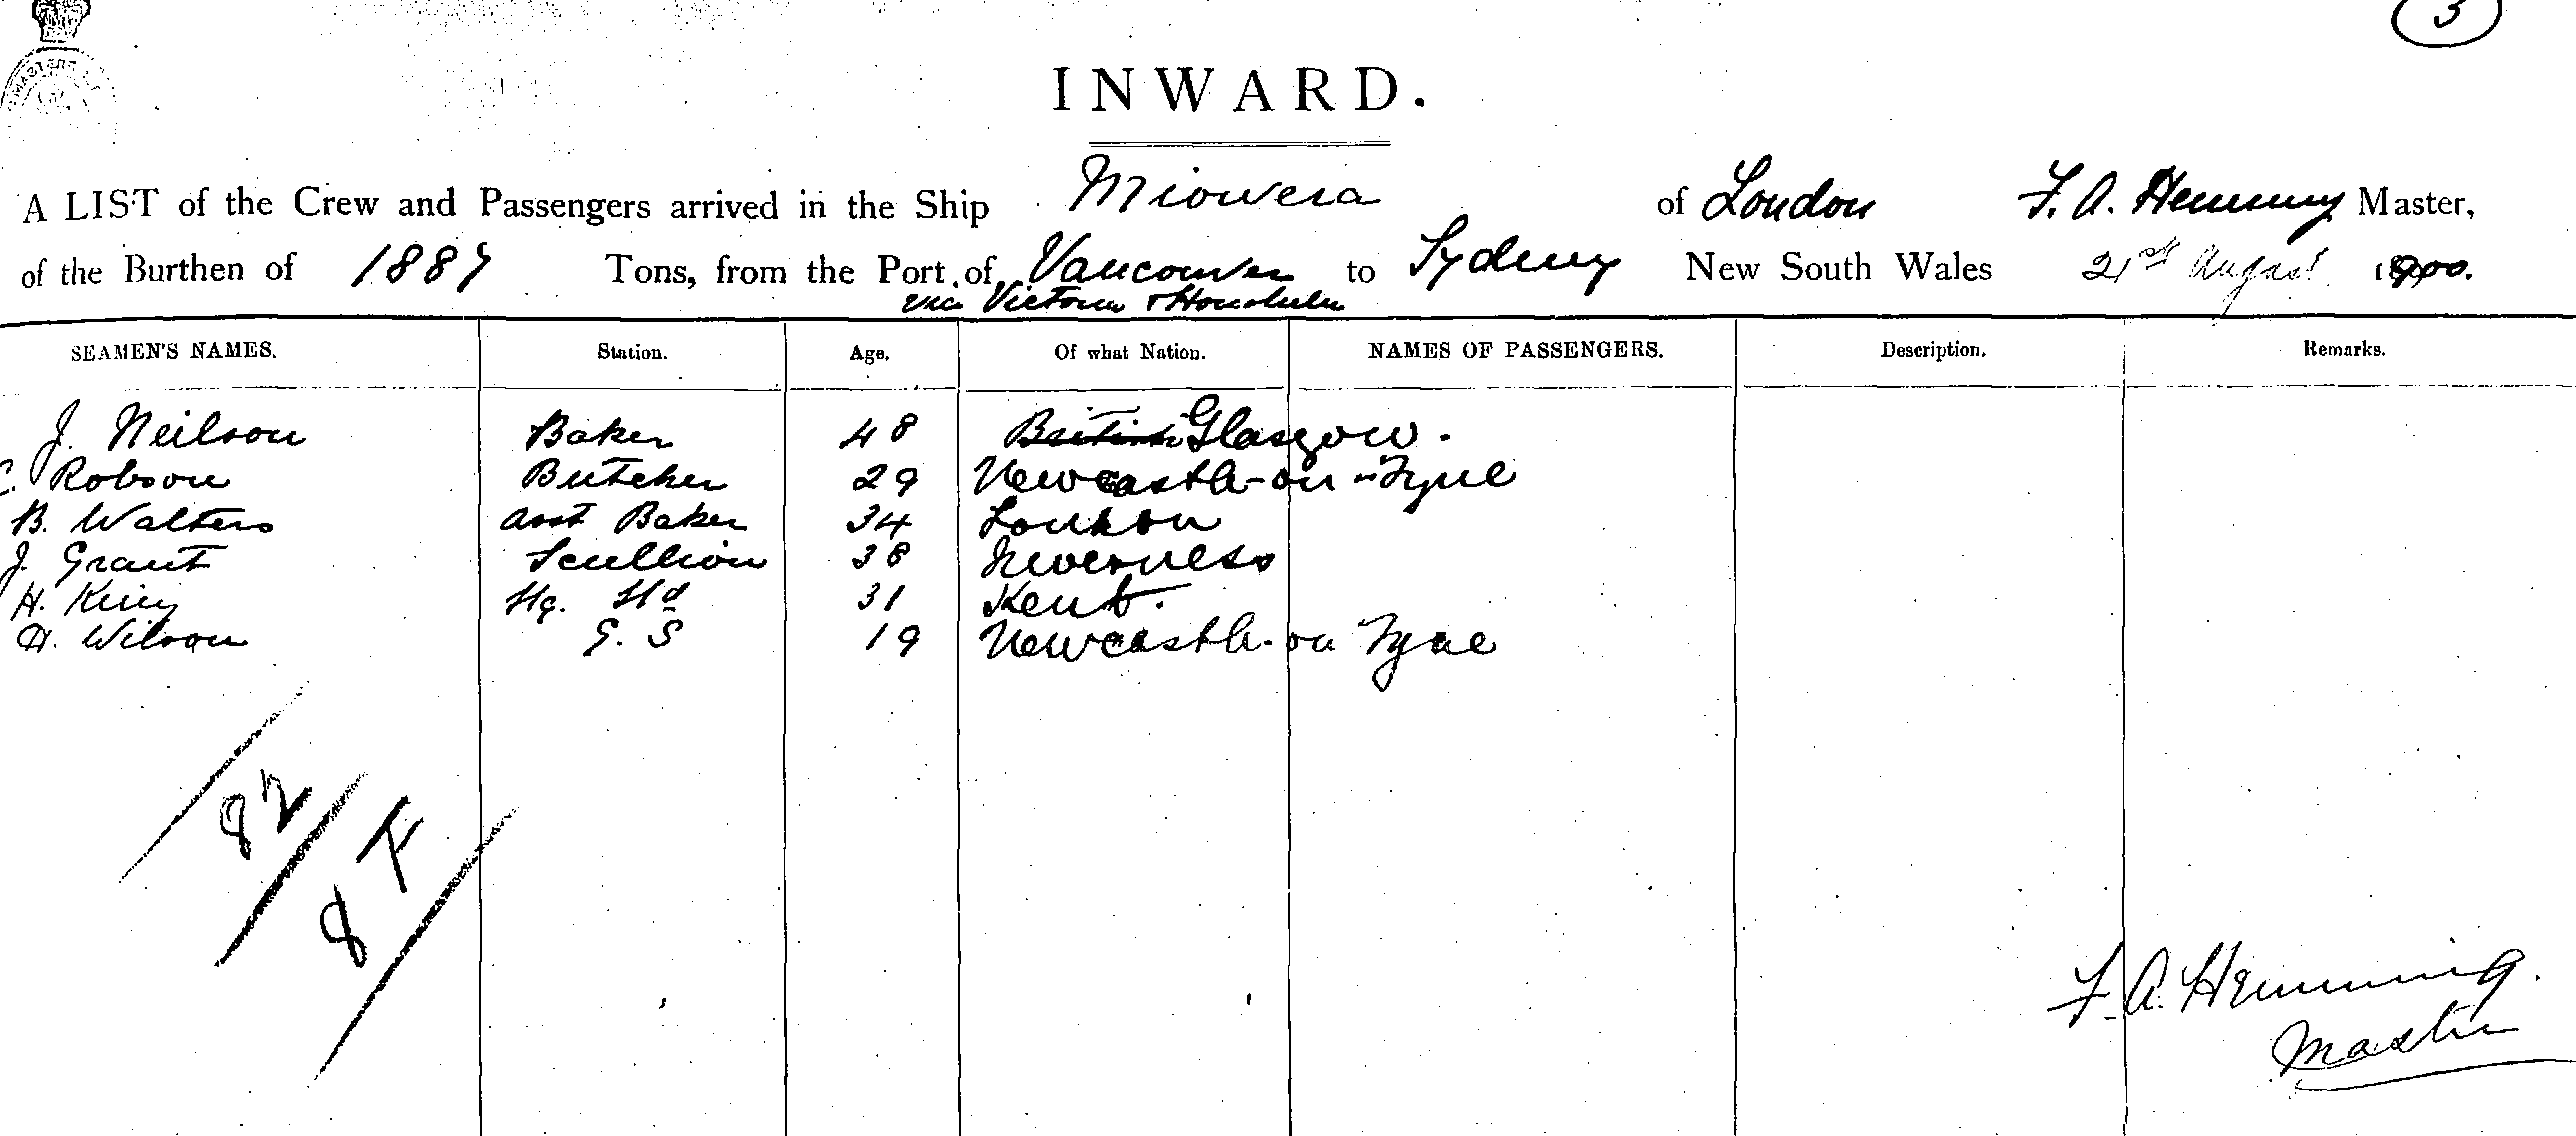 3
INWARD.
A LIST of the Crew and Passengers arrived in the Ship Miowera of London F. A. Hemming Master,
of the Burthen of 1887 Tons, from the Port of Vancouver to Sydney New South Wales 21st August 1900.
via Victoria & Honolulu
SEAMEN'S NAMES. Station. Age. Of what Nation. NAMES OF PASSENGERS. Description. Remarks.
J. Neilson Baker 48 British Glasgow.
C. Robson Butcher 29 Newcastle-on-Tyne
B. Walters Asst Baker 34 London
J. Grant Scullion 38 Inverness
H. King 31 Kent.
H. Wilson G. S 19 Newcastle-on Tyne
82
8 F
F. A. Hemming.
Master